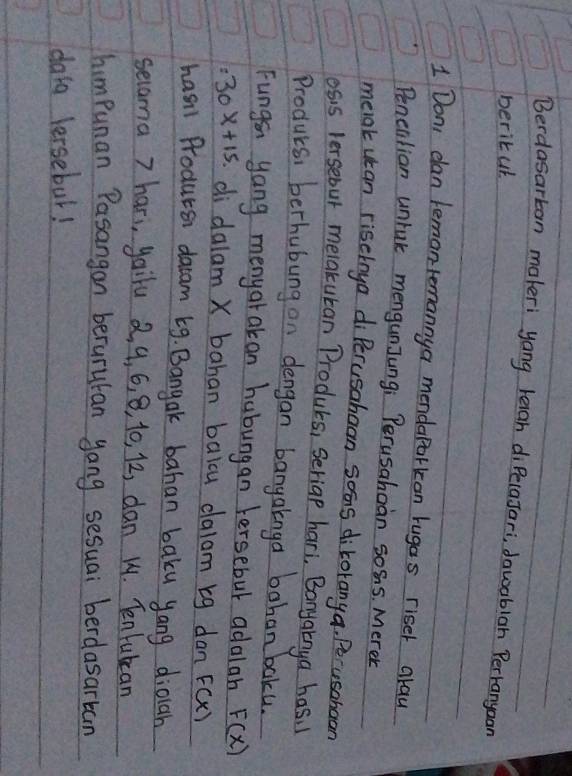 Berdasarkan materi yang telah dipelajari, Jawablah Pertanyaan
berikut
1 Doni dan teman temannya mendapatkan tugas riset atau
Penelitian untuk mengunJungi Perusahaan sosis. Merek
melakukan risetnya di Perusahaan sosis di kotanya. Perusahaan
osis tersebut melakukan Produksi setiap hari. Banyaknya hasil
Produksi berhubungan dengan banyaknya bahan baku.
Fungsi yang menyatakan hubungan tersebut adalah F(x)
=30x+15. di dalam x bahan baku dalam kg dan F(x)
hasil Produksi dalam kg. Banyak bahan baku yang diolah
selama 7 hari, yaitu 2,4,6,8,10,12, dan 14. Tentukan
himpunan Pasangan berurutan yang sesuai berdasarkan
data tersebut!